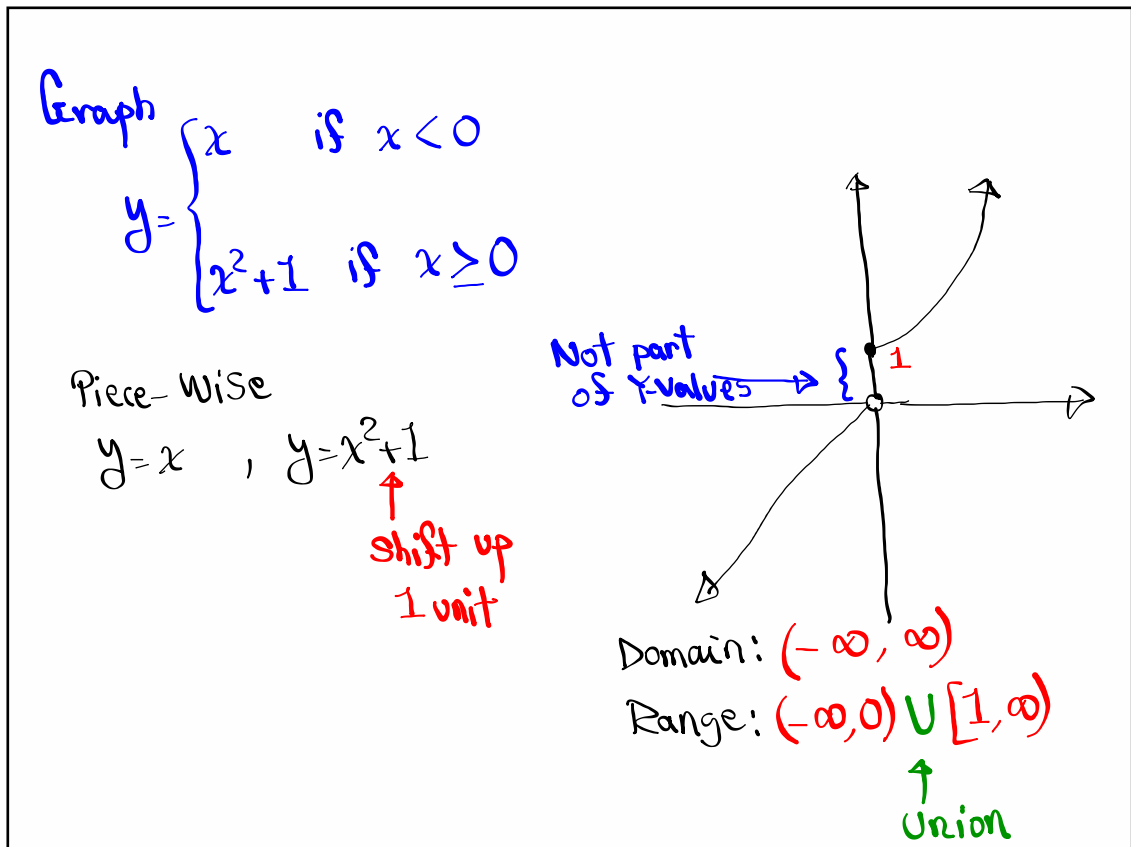 Graph
y= { x if x < 0
x²+1 if x ≥ 0
Piece-Wise
y=x , y=x²+1
shift up
1 unit
Not part
of Y-values
{
1
Domain: (-∞, ∞)
Range: (-∞,0) U [1,∞)
Union